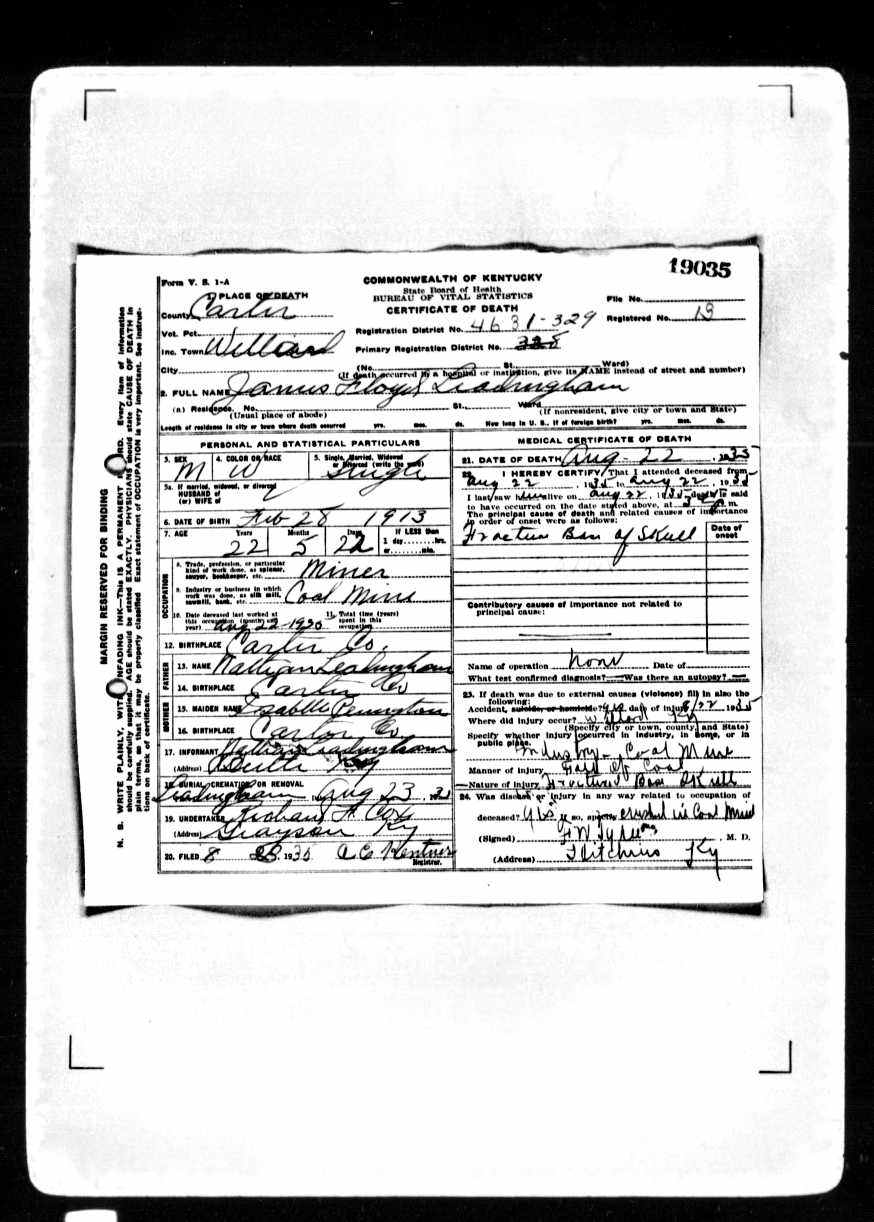 19035
Form V. S. 1-A
COMMONWEALTH OF KENTUCKY
State Board of Health
BUREAU OF VITAL STATISTICS
CERTIFICATE OF DEATH
1 PLACE OF DEATH
County Carter
Vot. Pct.
Inc. Town Willard
City
File No.
Registered No. 13
Registration District No. 4631-329
Primary Registration District No. 328
(No. St. Ward)
(If death occurred in a hospital or institution, give its NAME instead of street and number)
2. FULL NAME James Floyd Leadingham
(a) Residence. No. St., Ward
(Usual place of abode) (If nonresident, give city or town and State)
Length of residence in city or town where death occurred yrs. mos. ds. How long in U. S., if of foreign birth? yrs. mos. ds.
PERSONAL AND STATISTICAL PARTICULARS
3. SEX M
4. COLOR OR RACE W
5. Single, Married, Widowed or Divorced (write the word) Single
5a. If married, widowed, or divorced
HUSBAND of
(or) WIFE of
6. DATE OF BIRTH Feb 28 1913
7. AGE Years 22 Months 5 Days 22 If LESS than 1 day hrs. or min.
OCCUPATION
8. Trade, profession, or particular kind of work done, as spinner, sawyer, bookkeeper, etc. Miner
9. Industry or business in which work was done, as silk mill, sawmill, bank, etc. Coal Mine
10. Date deceased last worked at this occupation (month and year) Aug 22 1935
11. Total time (years) spent in this occupation
12. BIRTHPLACE Carter Co.
FATHER
13. NAME Leadingham
14. BIRTHPLACE Carter Co
MOTHER
15. MAIDEN NAME Penington
16. BIRTHPLACE Carter Co.
17. INFORMANT Leadingham
(Address) Ky
18. BURIAL, CREMATION OR REMOVAL
Leadingham Aug 23, 1935
19. UNDERTAKER
(Address) Grayson Ky
20. FILED 8 1935
Registrar.
MEDICAL CERTIFICATE OF DEATH
21. DATE OF DEATH Aug - 22, 1935
22. I HEREBY CERTIFY, That I attended deceased from
Aug 22, 1935 to Aug 22, 1935
I last saw him alive on Aug 22, 1935 death is said
to have occurred on the date stated above, at m.
The principal cause of death and related causes of importance
in order of onset were as follows:
Date of onset
Fracture Base of Skull
Contributory causes of importance not related to
principal cause:
Name of operation None Date of
What test confirmed diagnosis? Was there an autopsy?
23. If death was due to external causes (violence) fill in also the
following:
Accident, suicide, or homicide? yes date of injury 8/22 1935
Where did injury occur? Willard Ky
(Specify city or town, county, and State)
Specify whether injury occurred in industry, in home, or in
public place. Industry - Coal Mine
Manner of injury of Coal
Nature of injury Fractured Base Skull
24. Was disease or injury in any way related to occupation of
deceased? Yes If so, specify crushed in Coal Mine
(Signed) , M. D.
(Address) Ky
MARGIN RESERVED FOR BINDING
N. B. WRITE PLAINLY, WITH UNFADING INK—This IS A PERMANENT RECORD. Every item of information
should be carefully supplied. AGE should be stated EXACTLY. PHYSICIANS should state CAUSE OF DEATH in
plain terms, so that it may be properly classified. Exact statement of OCCUPATION is very important. See instruc-
tions on back of certificate.